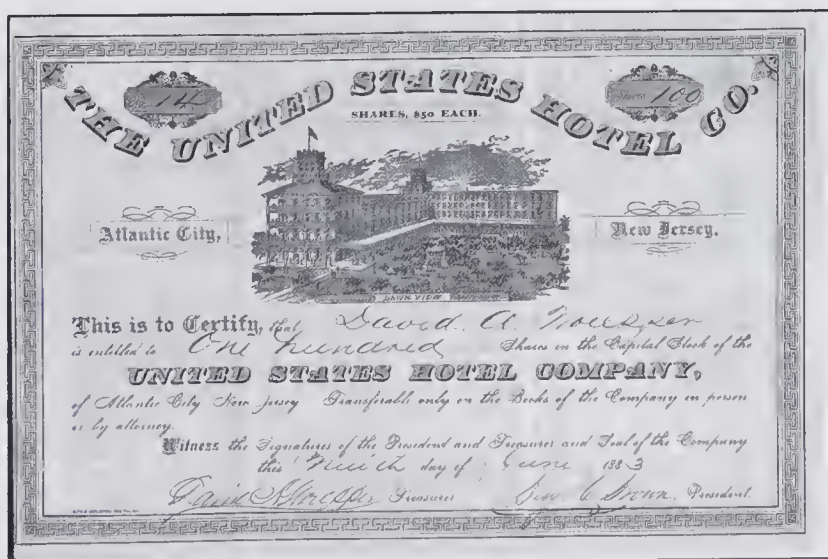 No. 14
Shares 100
THE UNITED STATES HOTEL CO.
SHARES, $50 EACH.
Atlantic City,
New Jersey.
PARK VIEW
This is to Certify, that David A.
is entitled to One hundred Shares in the Capital Stock of the
UNITED STATES HOTEL COMPANY,
of Atlantic City New Jersey Transferable only on the Books of the Company in person
or by attorney.
Witness the Signatures of the President and Treasurer and Seal of the Company
this Ninth day of June 1883
David Treasurer Brown President.